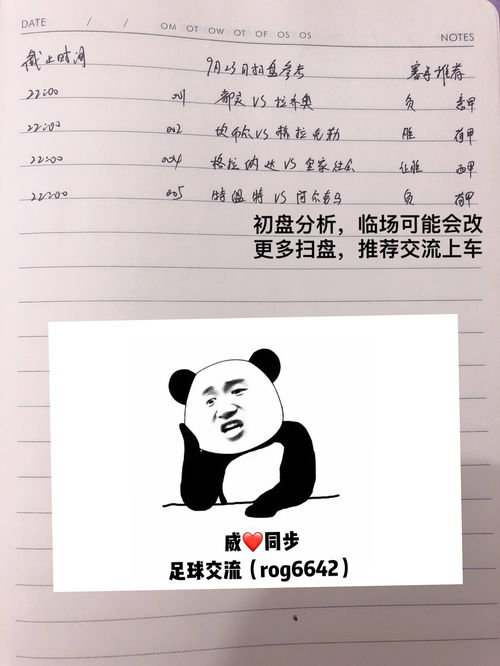 DATE / / OM OT OW OT OF OS OS NOTES
截止时间 9月23日扫盘参考 赛事推荐
22:00 001 都灵VS拉齐奥 负 意甲
22:00 002 坎布尔VS赫拉克勒 胜 荷甲
22:00 004 格拉纳达VS皇家社会 让胜 西甲
22:00 005 特温特VS阿尔克马 负 荷甲
初盘分析，临场可能会改
更多扫盘，推荐交流上车
威❤️同步
足球交流（rog6642）